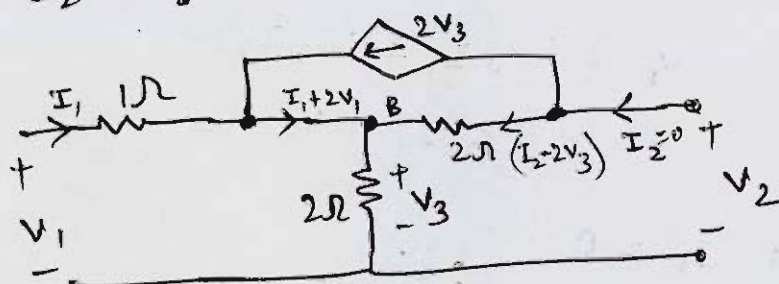 2V3
I1 1Ω I1+2V1 B
2Ω (I2-2V3) I2=0
+ + +
2Ω V3 V2
V1 - -
-